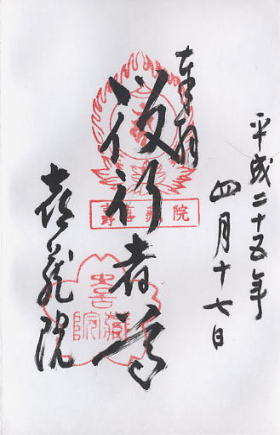 平成二十五年
四月十七日
奉拝
役行者尊
喜蔵院
喜藏院